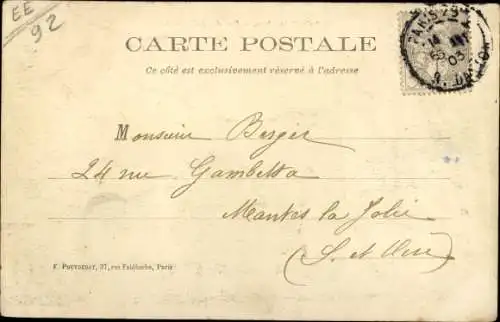 EE
92
CARTE POSTALE
Ce côté est exclusivement réservé à l'adresse
Monsieur Berger
24 rue Gambetta
Mantes la Jolie
(S. et Oise)
37, rue Faidherbe, Paris